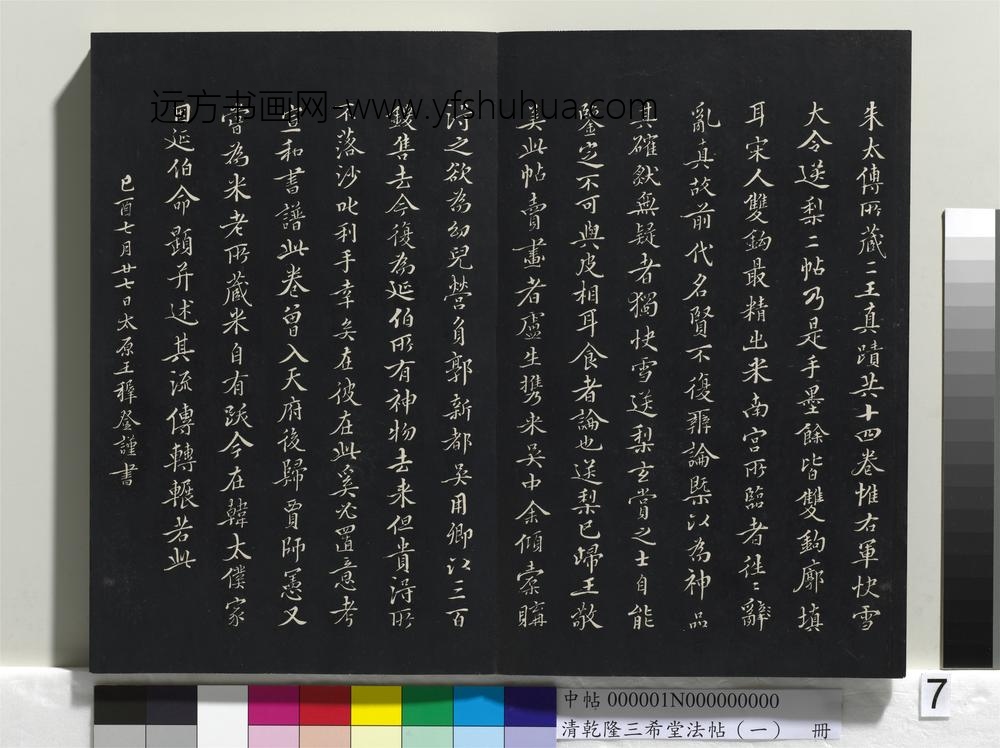 朱太傅所藏二王真蹟共十四卷惟右軍快雪
大令送梨二帖乃是手墨餘皆雙鈎廓填
耳宋人雙鈎最精出米南宮所臨者往〻
亂真故前代名賢不復辨論槩以為神品
其確然無疑者獨快雪送梨玄賞之士自能
鑒定不可與皮相耳食者論也送梨已歸王敬
美此帖賣畫者盧生攜来吳中余傾橐購
得之欲為幼兒營負郭新都吳用卿以三百
鍰售去今復為延伯所有神物去来但貴得所
不落沙叱利手幸矣在彼在此奚必置意考
宣和書譜此卷曾入天府後歸賈師憲又
嘗為米老所藏米自有跋今在韓太僕家
因延伯命題并述其流傳轉輾若此
己酉七月廿七日太原王穉登謹書
远方书画网-www.yfshuhua.com
7
中帖 000001N000000000
清乾隆三希堂法帖（一） 冊